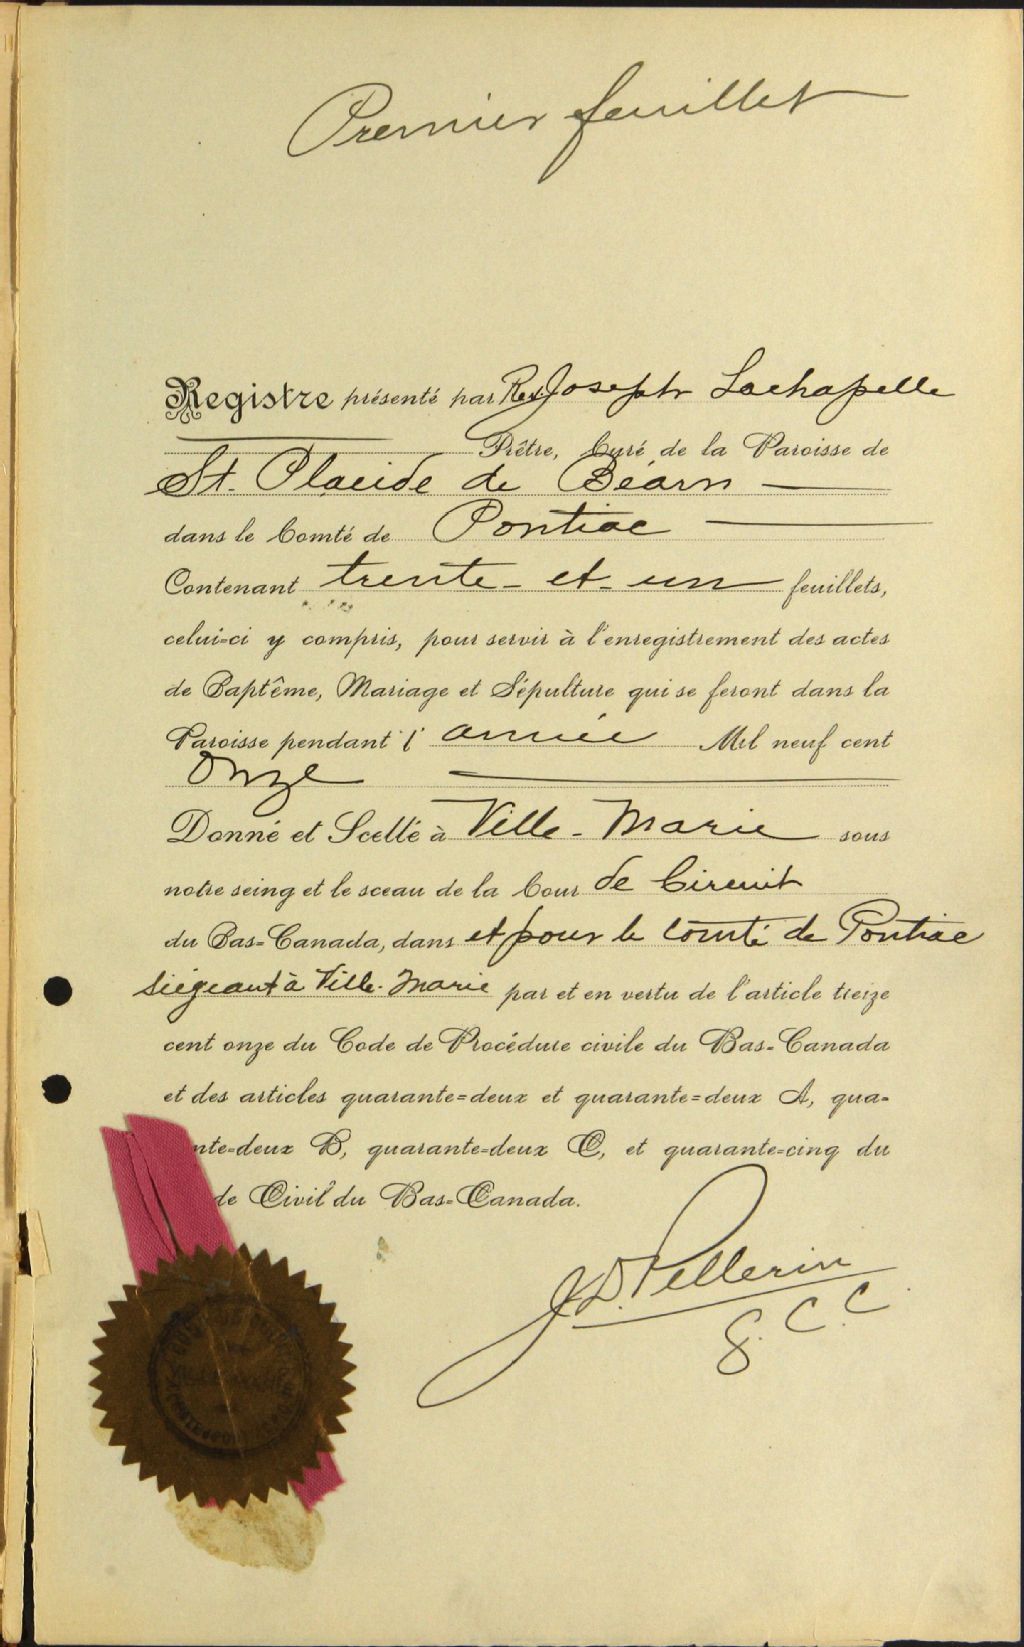 Premier feuillet
Registre présenté par Rev Joseph Lachapelle
Prêtre, Curé de la Paroisse de
St. Placide de Béarn
dans le Comté de Pontiac
Contenant trente-et-un feuillets,
celui=ci y compris, pour servir à l'enregistrement des actes
de Baptême, Mariage et Sépulture qui se feront dans la
Paroisse pendant l'année Mil neuf cent
Onze
Donné et Scellé à Ville-Marie sous
notre seing et le sceau de la Cour de Circuit
du Bas=Canada, dans et pour le comté de Pontiac
siégeant à Ville-Marie par et en vertu de l'article treize
cent onze du Code de Procédure civile du Bas=Canada
et des articles quarante=deux et quarante=deux A, qua=
nte=deux B, quarante=deux C, et quarante=cinq du
de Civil du Bas=Canada.
J.D. Pellerin
G. C. C.